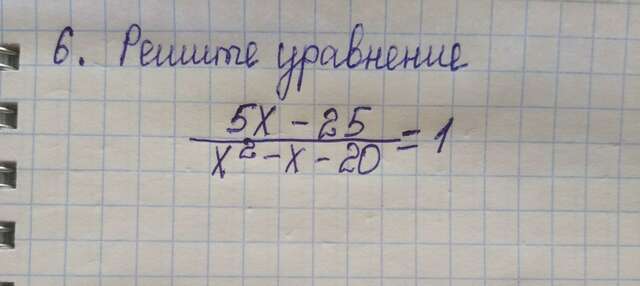 6. Решите уравнение
5x - 25
x² - x - 20 = 1